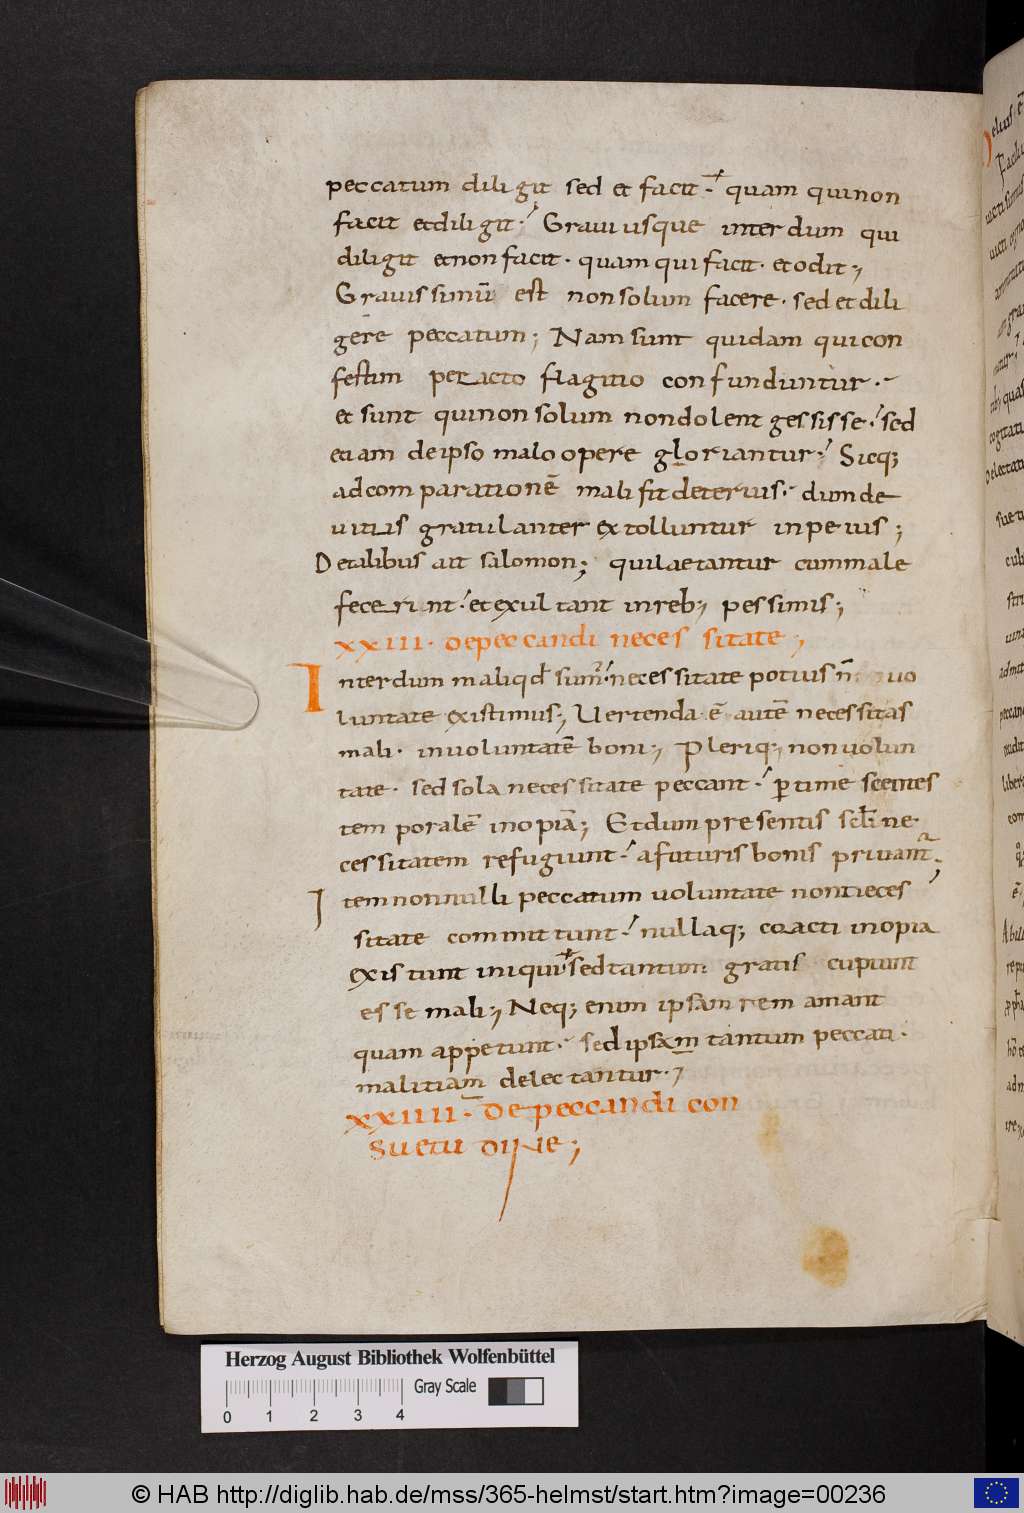 peccatum diligit sed et facit. quam qui non
facit et diligit. Gravius que interdum qui
diligit et non facit. quam qui facit. et odit;
Gravissimū est non solum facere. sed et dili
gere peccatum; Nam sunt quidam qui con
festim peracto flagitio confunduntur.
et sunt qui non solum non dolent gessisse. sed
etiam de ipso malo opere gloriantur. Sicq;
ad comparationē mali fit deterius. dum de
vitiis gratulanter extolluntur in peius;
De talibus ait salomon; qui laetantur cum male
fecerint. et exultant in reb; pessimis;
XXIII. De peccandi necessitate;
Interdum mali qd̄ sum; necessitate potius n̄ vo
luntate existimus; Vertenda ē autē necessitas
mali. in voluntatē boni; Pleriq; non volun
tate. sed sola necessitate peccant. ꝑtimescentes
temporalē inopiā; Et dum presentis scl̄i ne
cessitatem refugiunt. a futuris bonis privant̄.
Item nonnulli peccatum voluntate non neces
sitate committunt. nullaq; coacti inopia
existunt iniqui sed tantum gratis cupiunt
esse mali; Neq; enim ipsam rem amant
quam appetunt. sed ipsam tantum peccati
malitiam delectantur.
XXIIII. De peccandi con
suetudine;
Herzog August Bibliothek Wolfenbüttel
Gray Scale
0 1 2 3 4
© HAB http://diglib.hab.de/mss/365-helmst/start.htm?image=00236